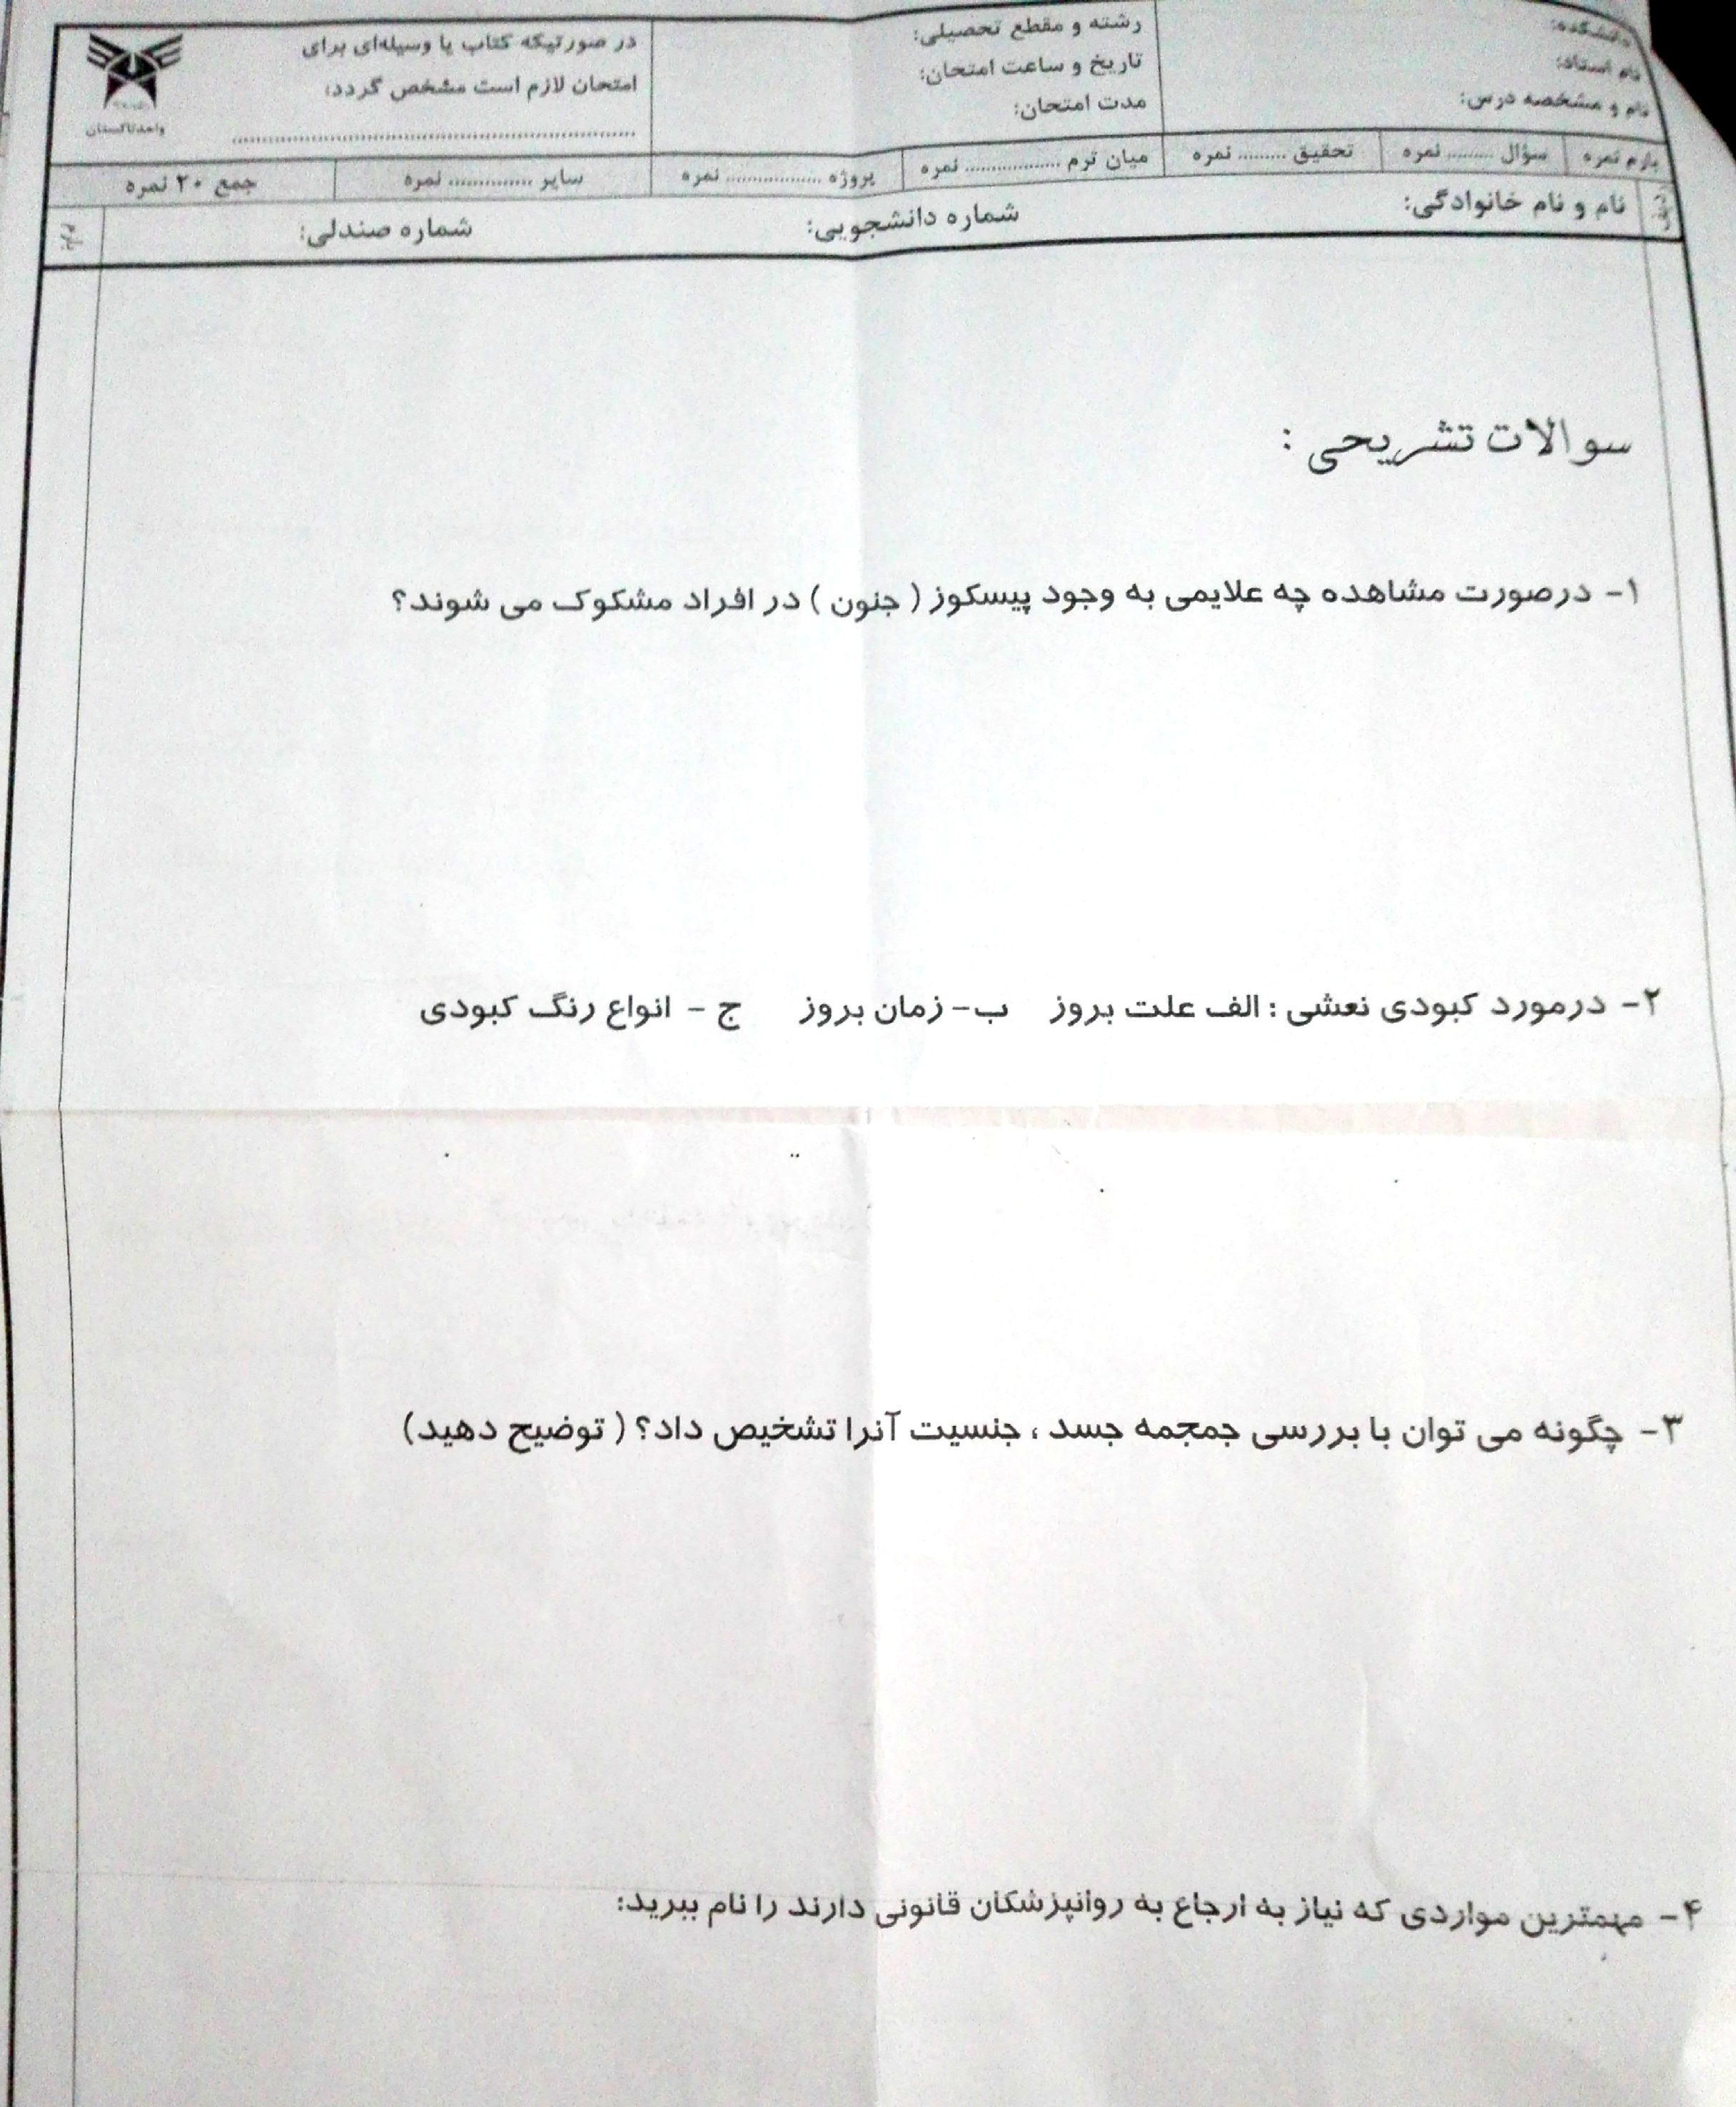 دانشکده:
نام استاد:
نام و مشخصه درس:
رشته و مقطع تحصیلی:
تاریخ و ساعت امتحان:
مدت امتحان:
در صورتیکه کتاب یا وسیله‌ای برای
امتحان لازم است مشخص گردد:
................................................
واحد تاکستان
بارم نمره | سؤال ......... نمره | تحقیق ......... نمره | میان ترم ................. نمره | پروژه ................. نمره | سایر .............. نمره | جمع ۲۰ نمره
نام و نام خانوادگی: شماره دانشجویی: شماره صندلی:
سوالات تشریحی :
۱- درصورت مشاهده چه علایمی به وجود پیسکوز ( جنون ) در افراد مشکوک می شوند؟
۲- درمورد کبودی نعشی : الف علت بروز ب- زمان بروز ج - انواع رنگ کبودی
۳- چگونه می توان با بررسی جمجمه جسد ، جنسیت آنرا تشخیص داد؟ ( توضیح دهید)
۴- مهمترین مواردی که نیاز به ارجاع به روانپزشکان قانونی دارند را نام ببرید: